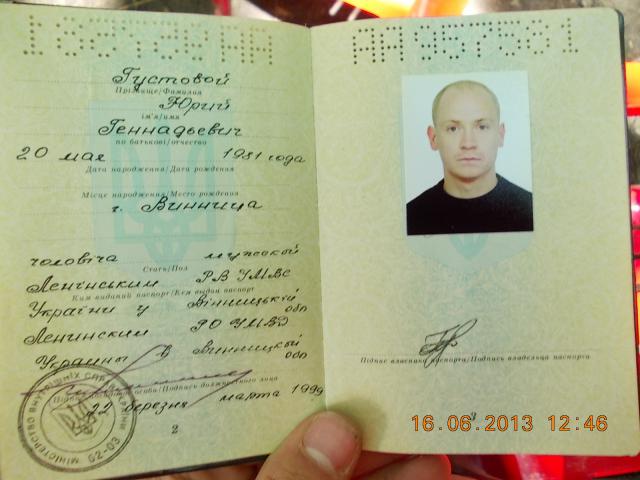 АА 957561
Густовой
Прізвище/Фамилия
Юрий
ім'я/имя
Геннадьевич
по батькові/отчество
20 мая 1981 года
Дата народження/Дата рождения
Місце народження/Место рождения
г. Винница
чоловіча мужской
Стать/Пол
Ленінським РВ УМВС
Ким виданий паспорт/Кем выдан паспорт
України у Вінницькій обл
Ленинским РО УМВД
Украины в Винницкой обл
особи/Подпись должностного лица
22 березня марта 1999
2
МІНІСТЕРСТВО ВНУТРІШНІХ СПРАВ УКРАЇНИ
02-03
Підпис власника паспорта/Подпись владельца паспорта
3
16.06.2013 12:46